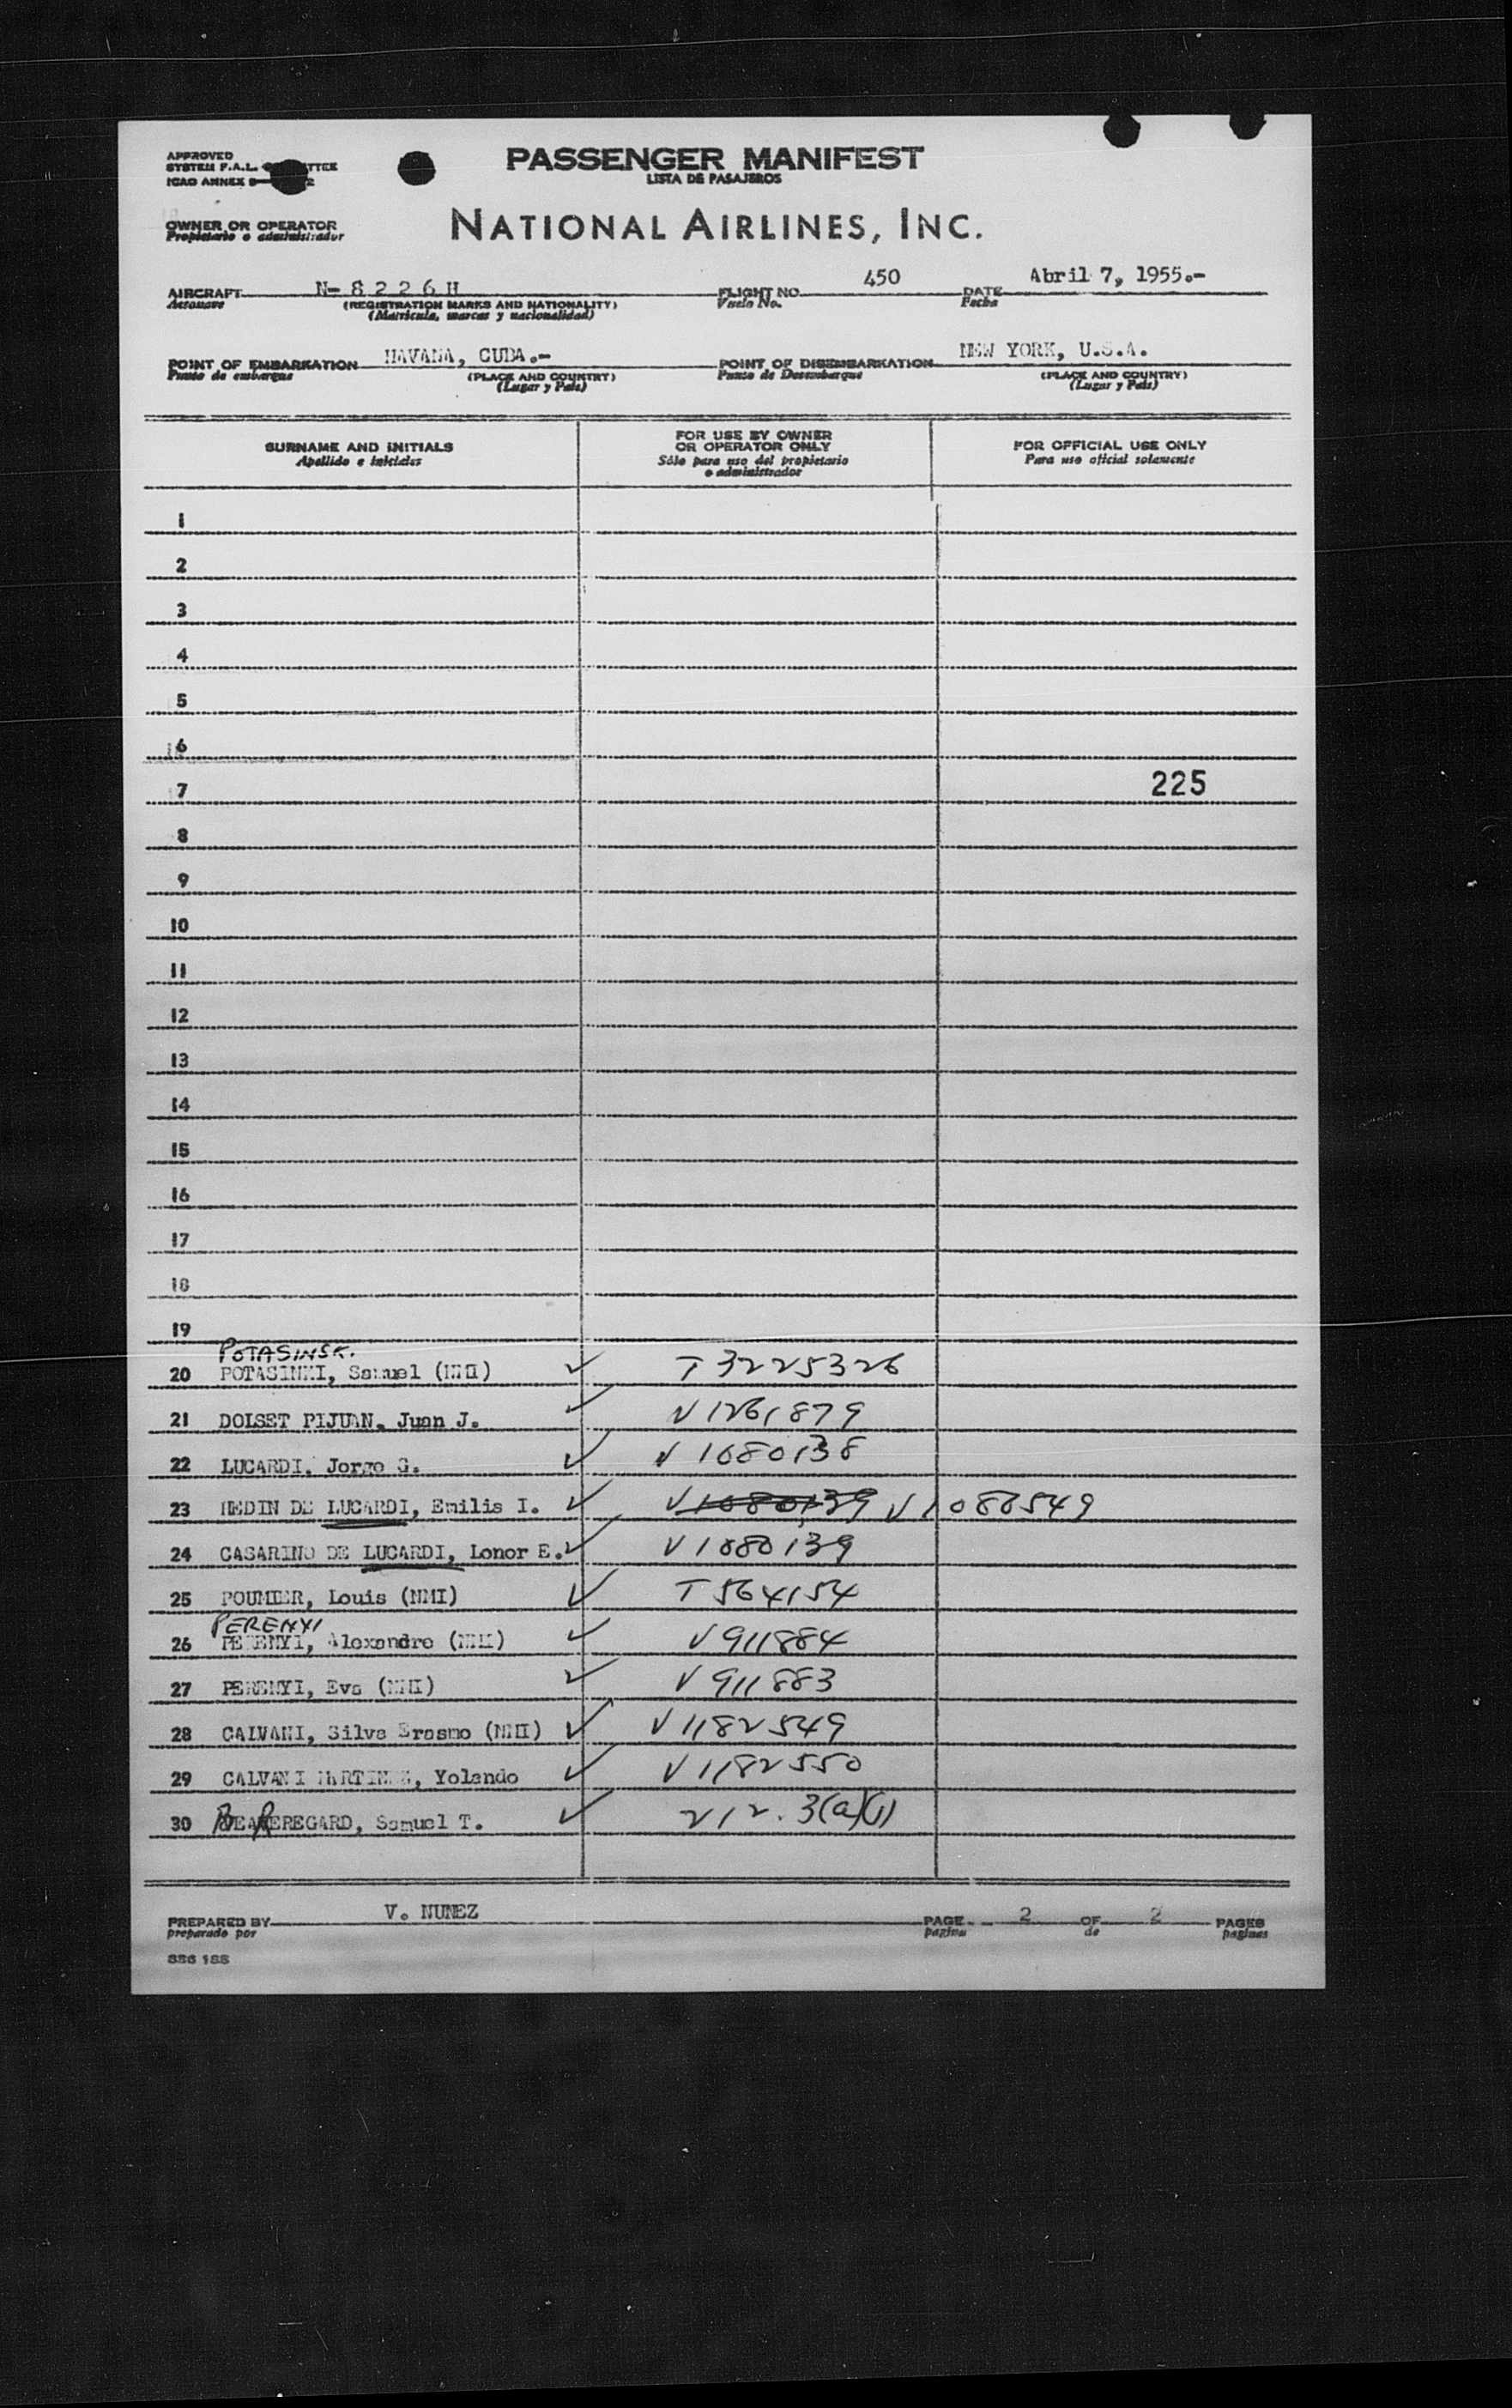 APPROVED
SYSTEM F.A.L.
ICAO ANNEX 9
PASSENGER MANIFEST
LISTA DE PASAJEROS
OWNER OR OPERATOR
Propietario o administrador
NATIONAL AIRLINES, INC.
AIRCRAFT N-8226H FLIGHT NO. 450 DATE Abril 7, 1955.-
Aeronave (REGISTRATION MARKS AND NATIONALITY) Vuelo No. Fecha
(Matricula, marcas y nacionalidad)
POINT OF EMBARKATION HAVANA, CUBA.- POINT OF DISEMBARKATION NEW YORK, U.S.A.
Punto de embarque (PLACE AND COUNTRY) Punto de Desembarque (PLACE AND COUNTRY)
(Lugar y País) (Lugar y País)
SURNAME AND INITIALS FOR USE BY OWNER OR OPERATOR ONLY FOR OFFICIAL USE ONLY
Apellido e iniciales Sólo para uso del propietario o administrador Para uso oficial solamente
1
2
3
4
5
6
7 225
8
9
10
11
12
13
14
15
16
17
18
19
POTASINSK.
20 POTASINKI, Samuel (NMI) ✓ T 3225326
21 DOLSET PIJUAN, Juan J. ✓ V1261879
22 LUCARDI, Jorge G. ✓ V 1080138
23 MEDIN DE LUCARDI, Emilis I. ✓ V1080139 V1080549
24 CASARINO DE LUCARDI, Lonor E. ✓ V1080139
25 POUMIER, Louis (NMI) ✓ T564154
PERENYI
26 PERENYI, Alexandre (NMI) ✓ V911884
27 PERENYI, Eva (NMI) ✓ V911883
28 CALVANI, Silva Erasmo (NMI) ✓ V1182549
29 CALVANI MARTINEZ, Yolando ✓ V1182550
30 BEAREGARD, Samuel T. ✓ 212.3(a)(1)
PREPARED BY V. NUNEZ PAGE 2 OF 2 PAGES
preparado por pagina de paginas